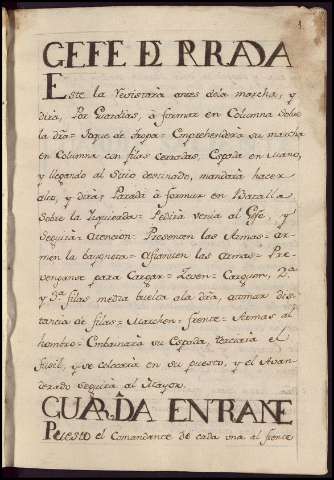 1
GEFE DE PARADA
Este la Revistará antes dela marcha, y
dirá, Por Guardias, à formar en Columna sobre
la dra = Toque de tropa = Emprehenderá su marcha
en Columna con filas cerradas, Espada en Mano,
y llegando al Sitio destinado, mandará hacer
alto, y dirá = Parada à formar en Batalla
sobre la Izquierda = Pedirá venia al Gefe, y
Seguirá = Atencion = Presenten las Armas = Ar-
men la bayoneta = Afiancen las armas = Pre-
venganse para Cargar = Zeven = Carguen, 2ª
y 3ª filas media buelta ala dra, atomar dis-
tancia de filas = Marchen = frente = Armas al
hombro = Embainará su Espada, terciará el
fusil, y se colocará en su puesto, y el Avan-
derado seguirá al Mayor.
GUARDIA ENTRANTE
Puesto el Comandante de cada una al frente